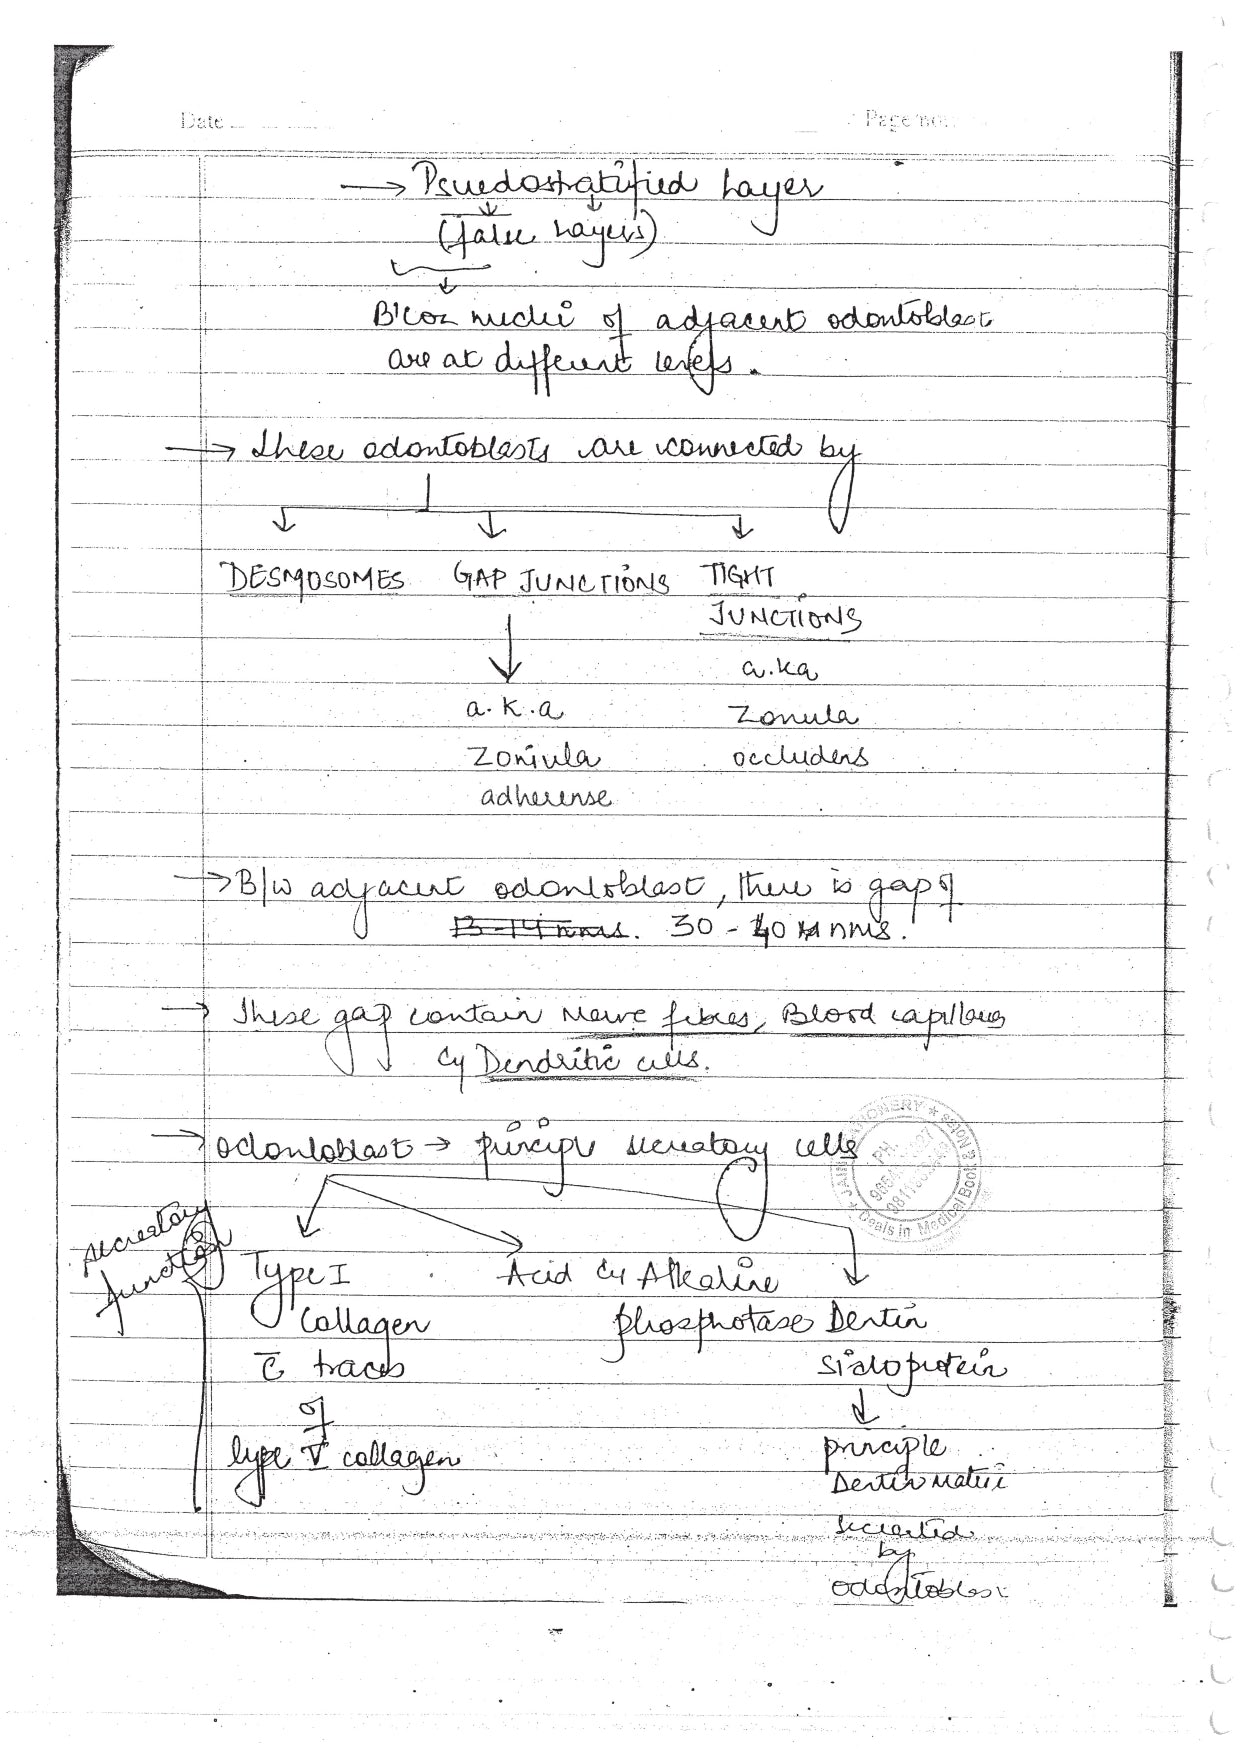 Date
Page no.
→ Psuedostratified Layer
(false Layers)
B'coz nuclei of adjacent odontoblast
are at different levels.
→ These odontoblasts are connected by
DESMOSOMES GAP JUNCTIONS TIGHT
JUNCTIONS
a.k.a
a.k.a Zonula
Zonula occludens
adherense
→ B/w adjacent odontoblast, there is gap of
13-14 nms. 30 - 40 nms.
→ These gap contain Nerve fibres, Blood capillaries
& Dendritic cells.
→ odontoblast → principle secreatory cells
secreatory
function
Type I Acid & Alkaline
Collagen phosphotase Dentin
c̄ traces sialoprotein
of
type V collagen principle
Dentin Matrix
secreated
by
odontoblast
JAIN STATIONERY ★
PH.
★ Deals in Medical Book & Notes